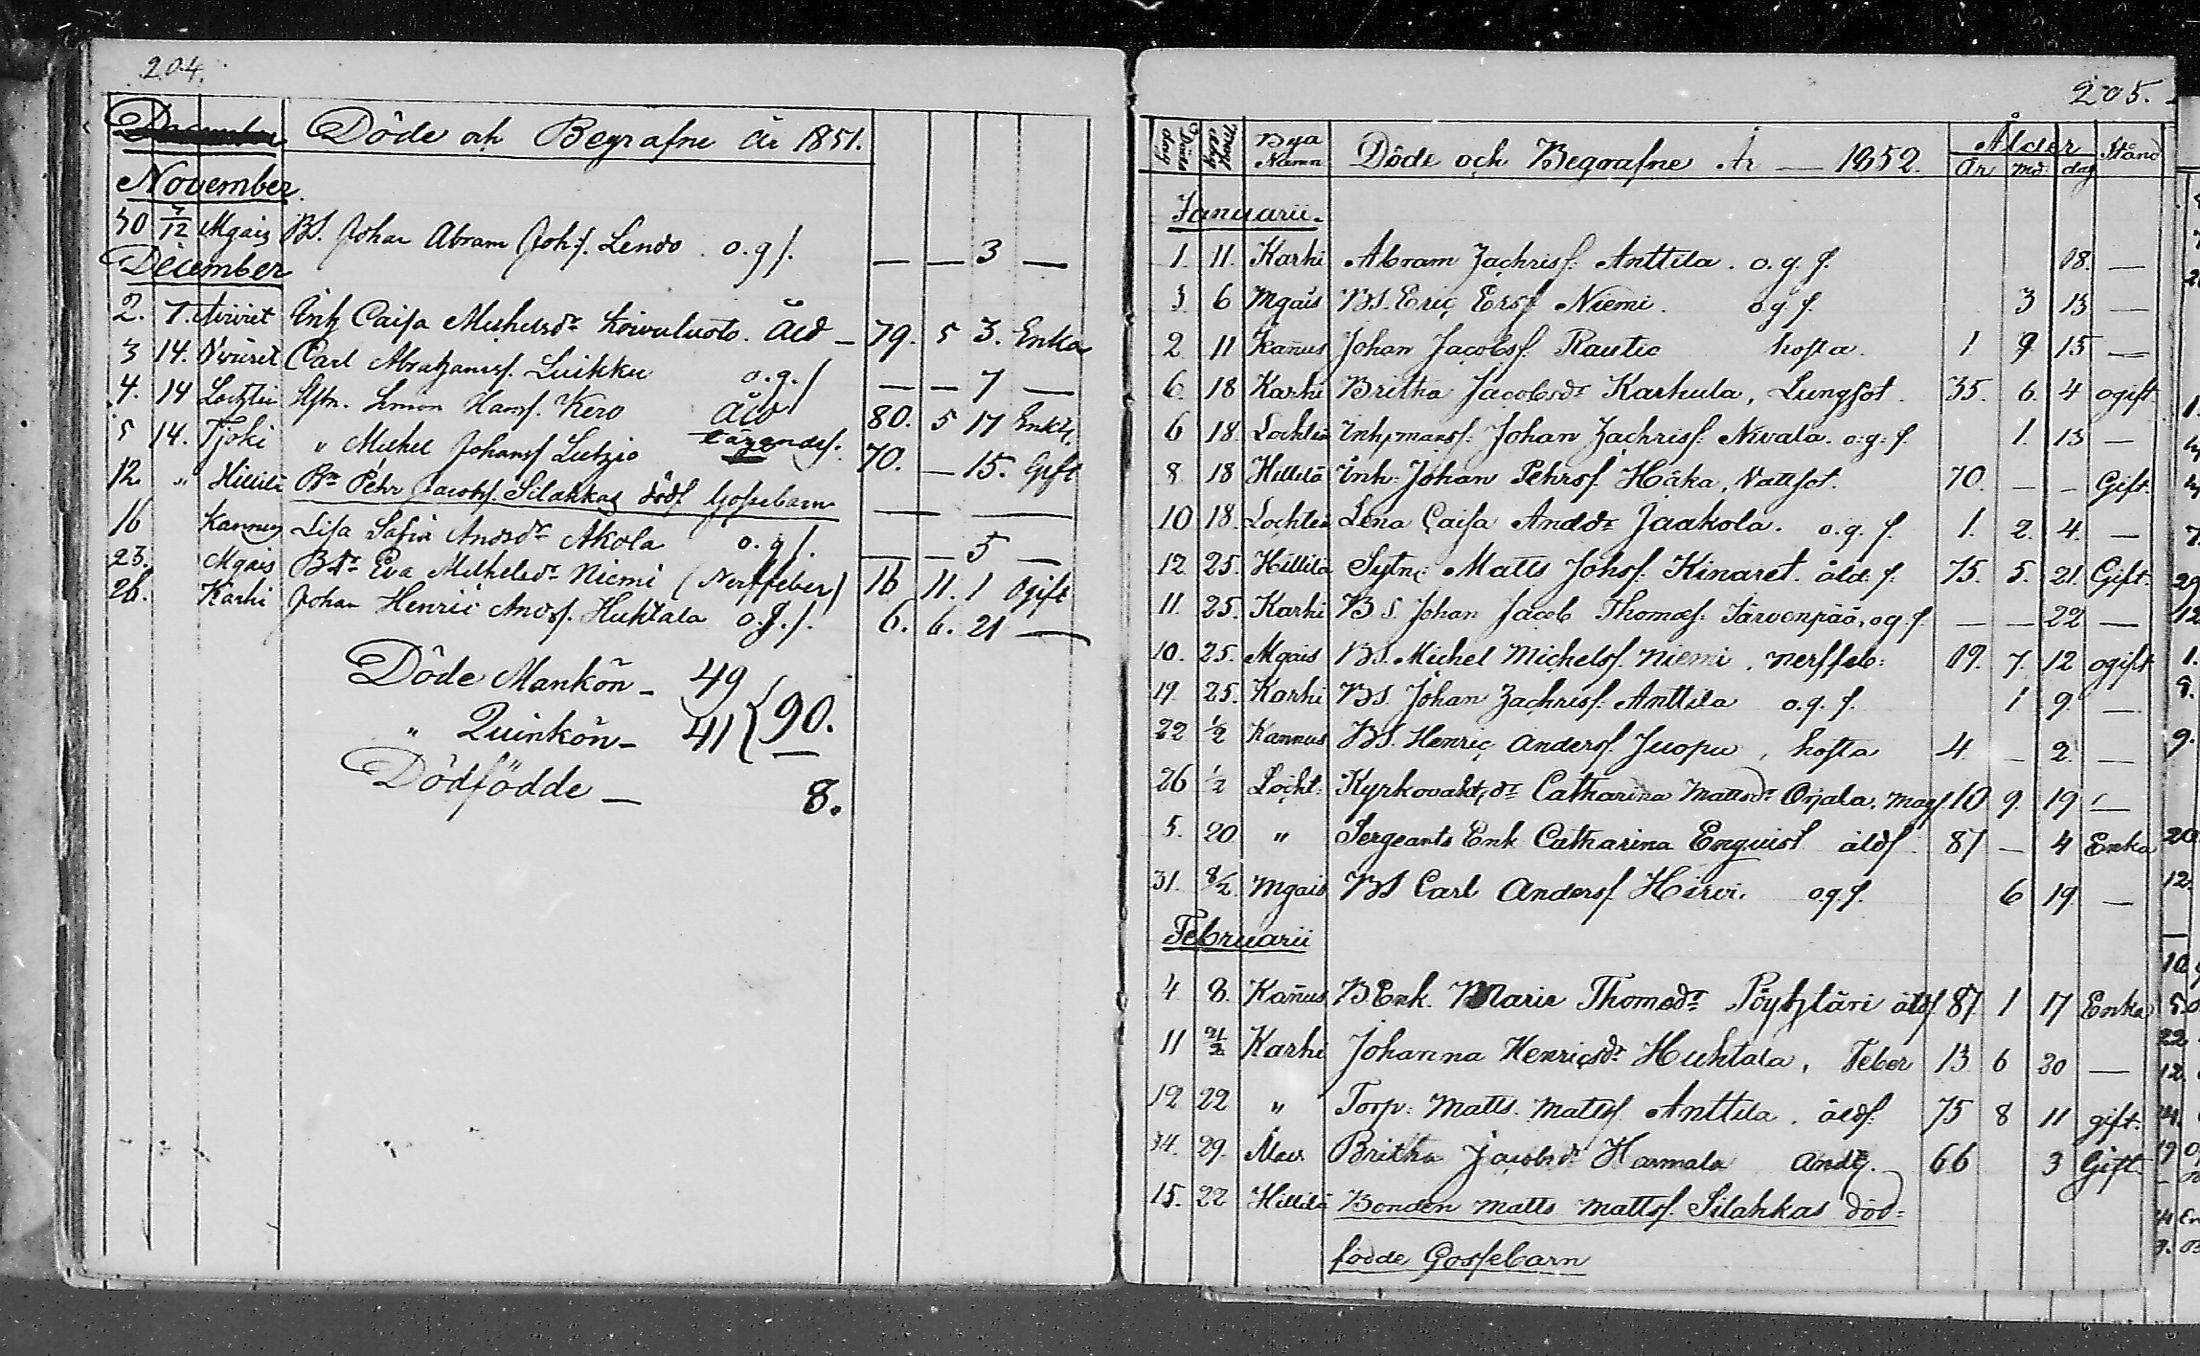 204.
Döde och Begrafne År 1851.
November
30 7/12 Mgais BS. Johan Abram Joh:s. Lendo. o.g.f. — — 3 —
December
2. 7. Inh Caisa Michelsdr Koivuluoto. Åld — 79. 5 3. Enka
3 14. Carl Abrahamsf. Luikku o.g.f — — 7 —
4. 14 Lochteå Simon Hansf. Kero Åld 80. 5 17 Enkl.
5 14. Yjoki " Michel Johansf Lutzio 70. — 15. Gift
12. " Hillilä Bn Pehr Jacobsf. Silahkas dödf Gossebarn — —
16 Kannus Lisa Sofia Andsdr Akola o.g.f. — — 5 —
23. Mgais Bdr Eva Michelsdr Niemi (Nerffeber) 16 11. 1 Ogift
26. Karhi Johan Henric Andsf. Huhtala o.g.f. 6. 6. 21 —
Döde Mankön — 49
" Quinkön — 41 } 90.
Dödfödde — 8.
205.
Död dag Bya Namn Döde och Begrafne År — 1852. Ålder År Må: dag Stånd
Januarii.
1. 11. Karhi Abram Zachrisf: Anttila. o.g.f. 08. —
3 6 Mgais BS. Eric Ersf Niemi. o.g.f. 3 13 —
2 11 Kañus Johan Jacobsf. Rautio hosta. 1 9 15 —
6. 18 Karhi Britha Jacobsdr Karhula, Lungsot. 35. 6. 4 ogift
6 18. Lochteå Inhysmansf: Johan Zachrisf: Nivala. o.g.f. 1. 13 —
8 18 Hillilä Inh: Johan Pehrsf. Häka, Vattsot. 70. — — Gift.
10 18. Lochteå Lena Caisa Anddr Jaakola. o.g.f. 1. 2. 4. —
12. 25. Hillilä Sytn: Matts Johsf. Kinaret. åld.f. 75. 5. 21. Gift.
11. 25. Karhi BS. Johan Jacob Thomasf. Järvenpää, o.g.f. — — 22 —
10. 25. Mgais BS. Michel Michelsf. Niemi, nerffeb: 19. 7. 12 ogift
19. 25. Karhi BS. Johan Zachrisf: Anttila o.g.f. 1 9. —
22 1/2 Kannus BS. Henric Andersf. Juopu, hosta 4. — 2. —
26 1/2 Locht: Kyrkovaktsdr Catharina Mattsdr Orjala, Magf. 10 9. 19 —
5. 20 " Sergeants Enk Catharina Enquist åldf 87 — 4 Enka
31. 8/2 Mgais BS Carl Andersf. Hirvi. o.g.f. 6 19. —
Februarii
4 8. Kañus BEnk. Maria Thomsdr Pöyhtäri åldf 87 1 17 Enka
11 21/2 Karhi Johanna Henricsdr Huhtala, Feber 13 6 20 —
12 22 " Torp: Matts. Mattsf. Anttila. åldf. 75 8 11 gift.
14. 29. Britha Jacobsdr Harmala Andtf. 66 3 Gift.
15. 22 Hillilä Bonden Matts Mattsf. Silahkas död=
födde Gossebarn